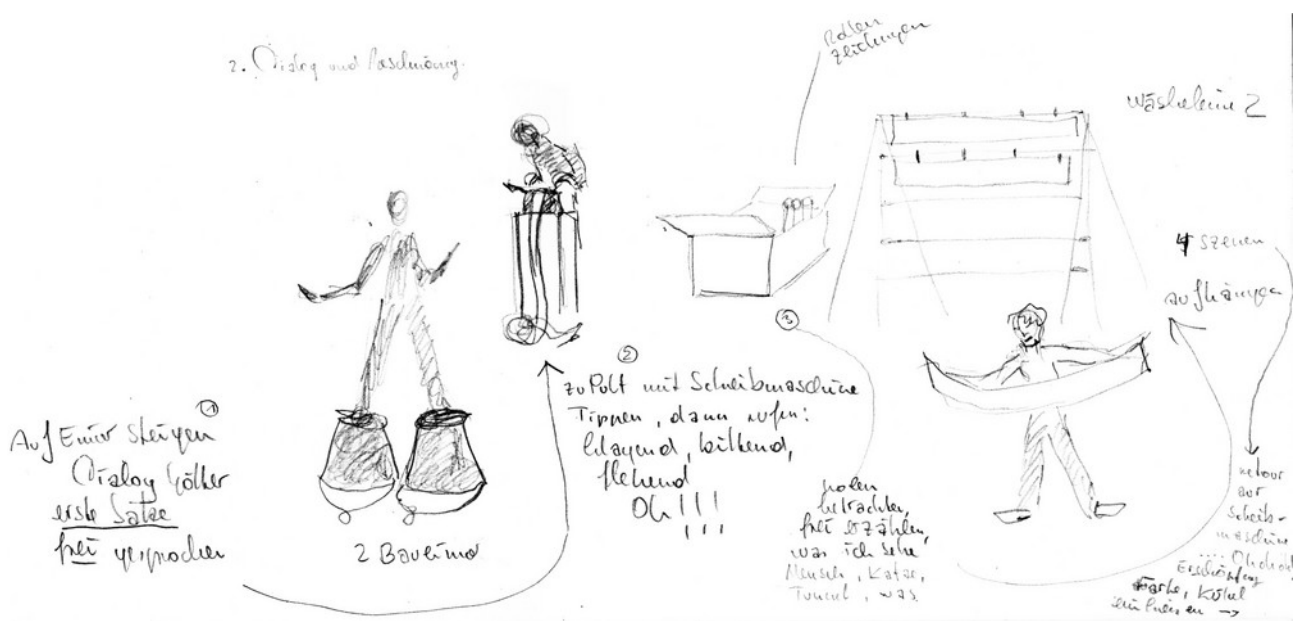 2. Dialog und
Rollen
Zeichnungen
Wäscheleine 2
4 Szenen
aufhängen
①
Auf Eimer steigen
Dialog Götter
erste Sätze
frei gesprochen
2 Baueimer
②
zu Pult mit Scheibmaschine
Tippen, dann rufen:
klagend, bittend,
flehend
Oh!!!
③
holen
betrachten,
frei erzählen,
was ich sehe
Mensch, Katze,
Tunnel, was
retour
zur
Scheib-
maschine
.... Ohohoh!
Erschöpfung
Farbe, Kübel